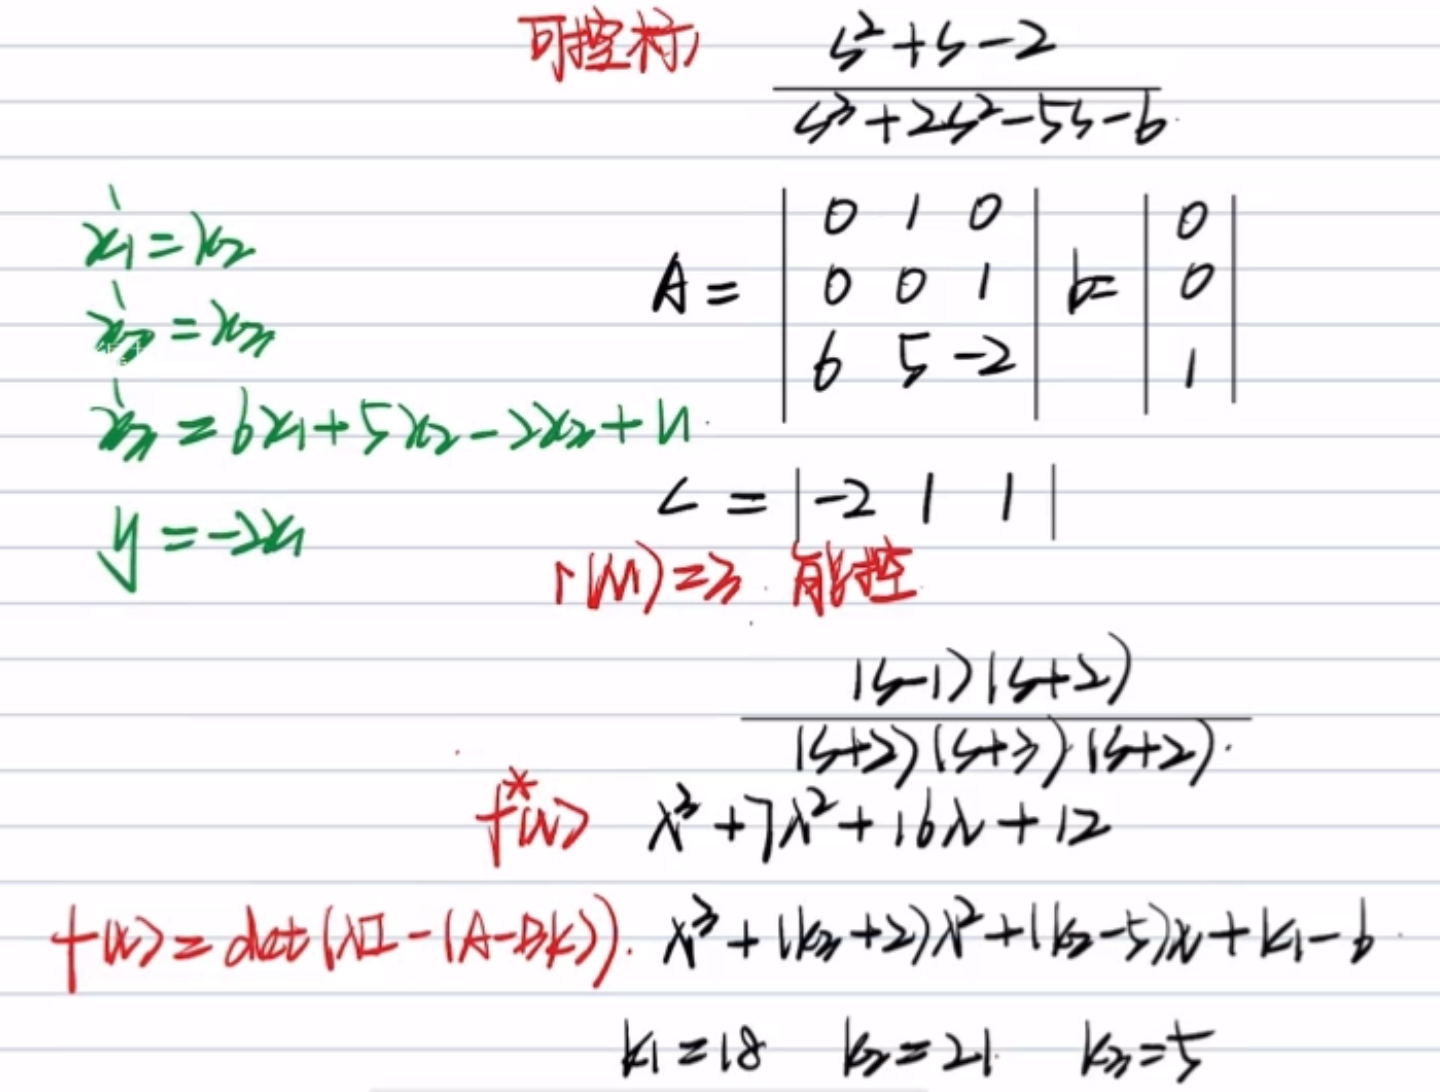 可控标
s²+s-2
s³+2s²-5s-6
ẋ1=x2
ẋ2=x3
ẋ3=6x1+5x2-2x3+u
y=-2x1
A= | 0 1 0 | b= | 0 |
| 0 0 1 | | 0 |
| 6 5 -2 | | 1 |
C = |-2 1 1|
r(M)=3 能控
(s-1)(s+2)
(s+2)(s+3)(s+2)
f*(λ) λ³+7λ²+16λ+12
f(λ)=det(λI-(A-Bk)). λ³+(k3+2)λ²+(k2-5)λ+k1-6
k1=18 k2=21 k3=5